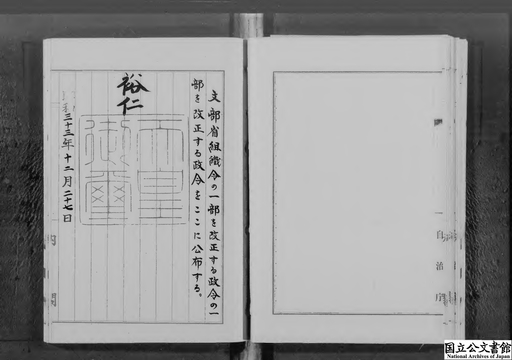 文部省組織令の一部を改正する政令の一
部を改正する政令をここに公布する。
裕仁
天皇
御璽
三十三年十二月二十七日
内閣
自治庁
国立公文書館
National Archives of Japan